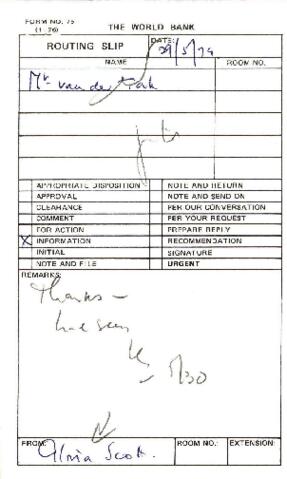 FORM NO. 75
(1-76)
THE WORLD BANK
ROUTING SLIP
DATE: 29/5/79
NAME
ROOM NO.
Mr. van der Tak
APPROPRIATE DISPOSITION
NOTE AND RETURN
APPROVAL
NOTE AND SEND ON
CLEARANCE
PER OUR CONVERSATION
COMMENT
PER YOUR REQUEST
FOR ACTION
PREPARE REPLY
X INFORMATION
RECOMMENDATION
INITIAL
SIGNATURE
NOTE AND FILE
URGENT
REMARKS:
Thanks –
have seen
5/30
FROM:
Gloria Scott.
ROOM NO.:
EXTENSION: